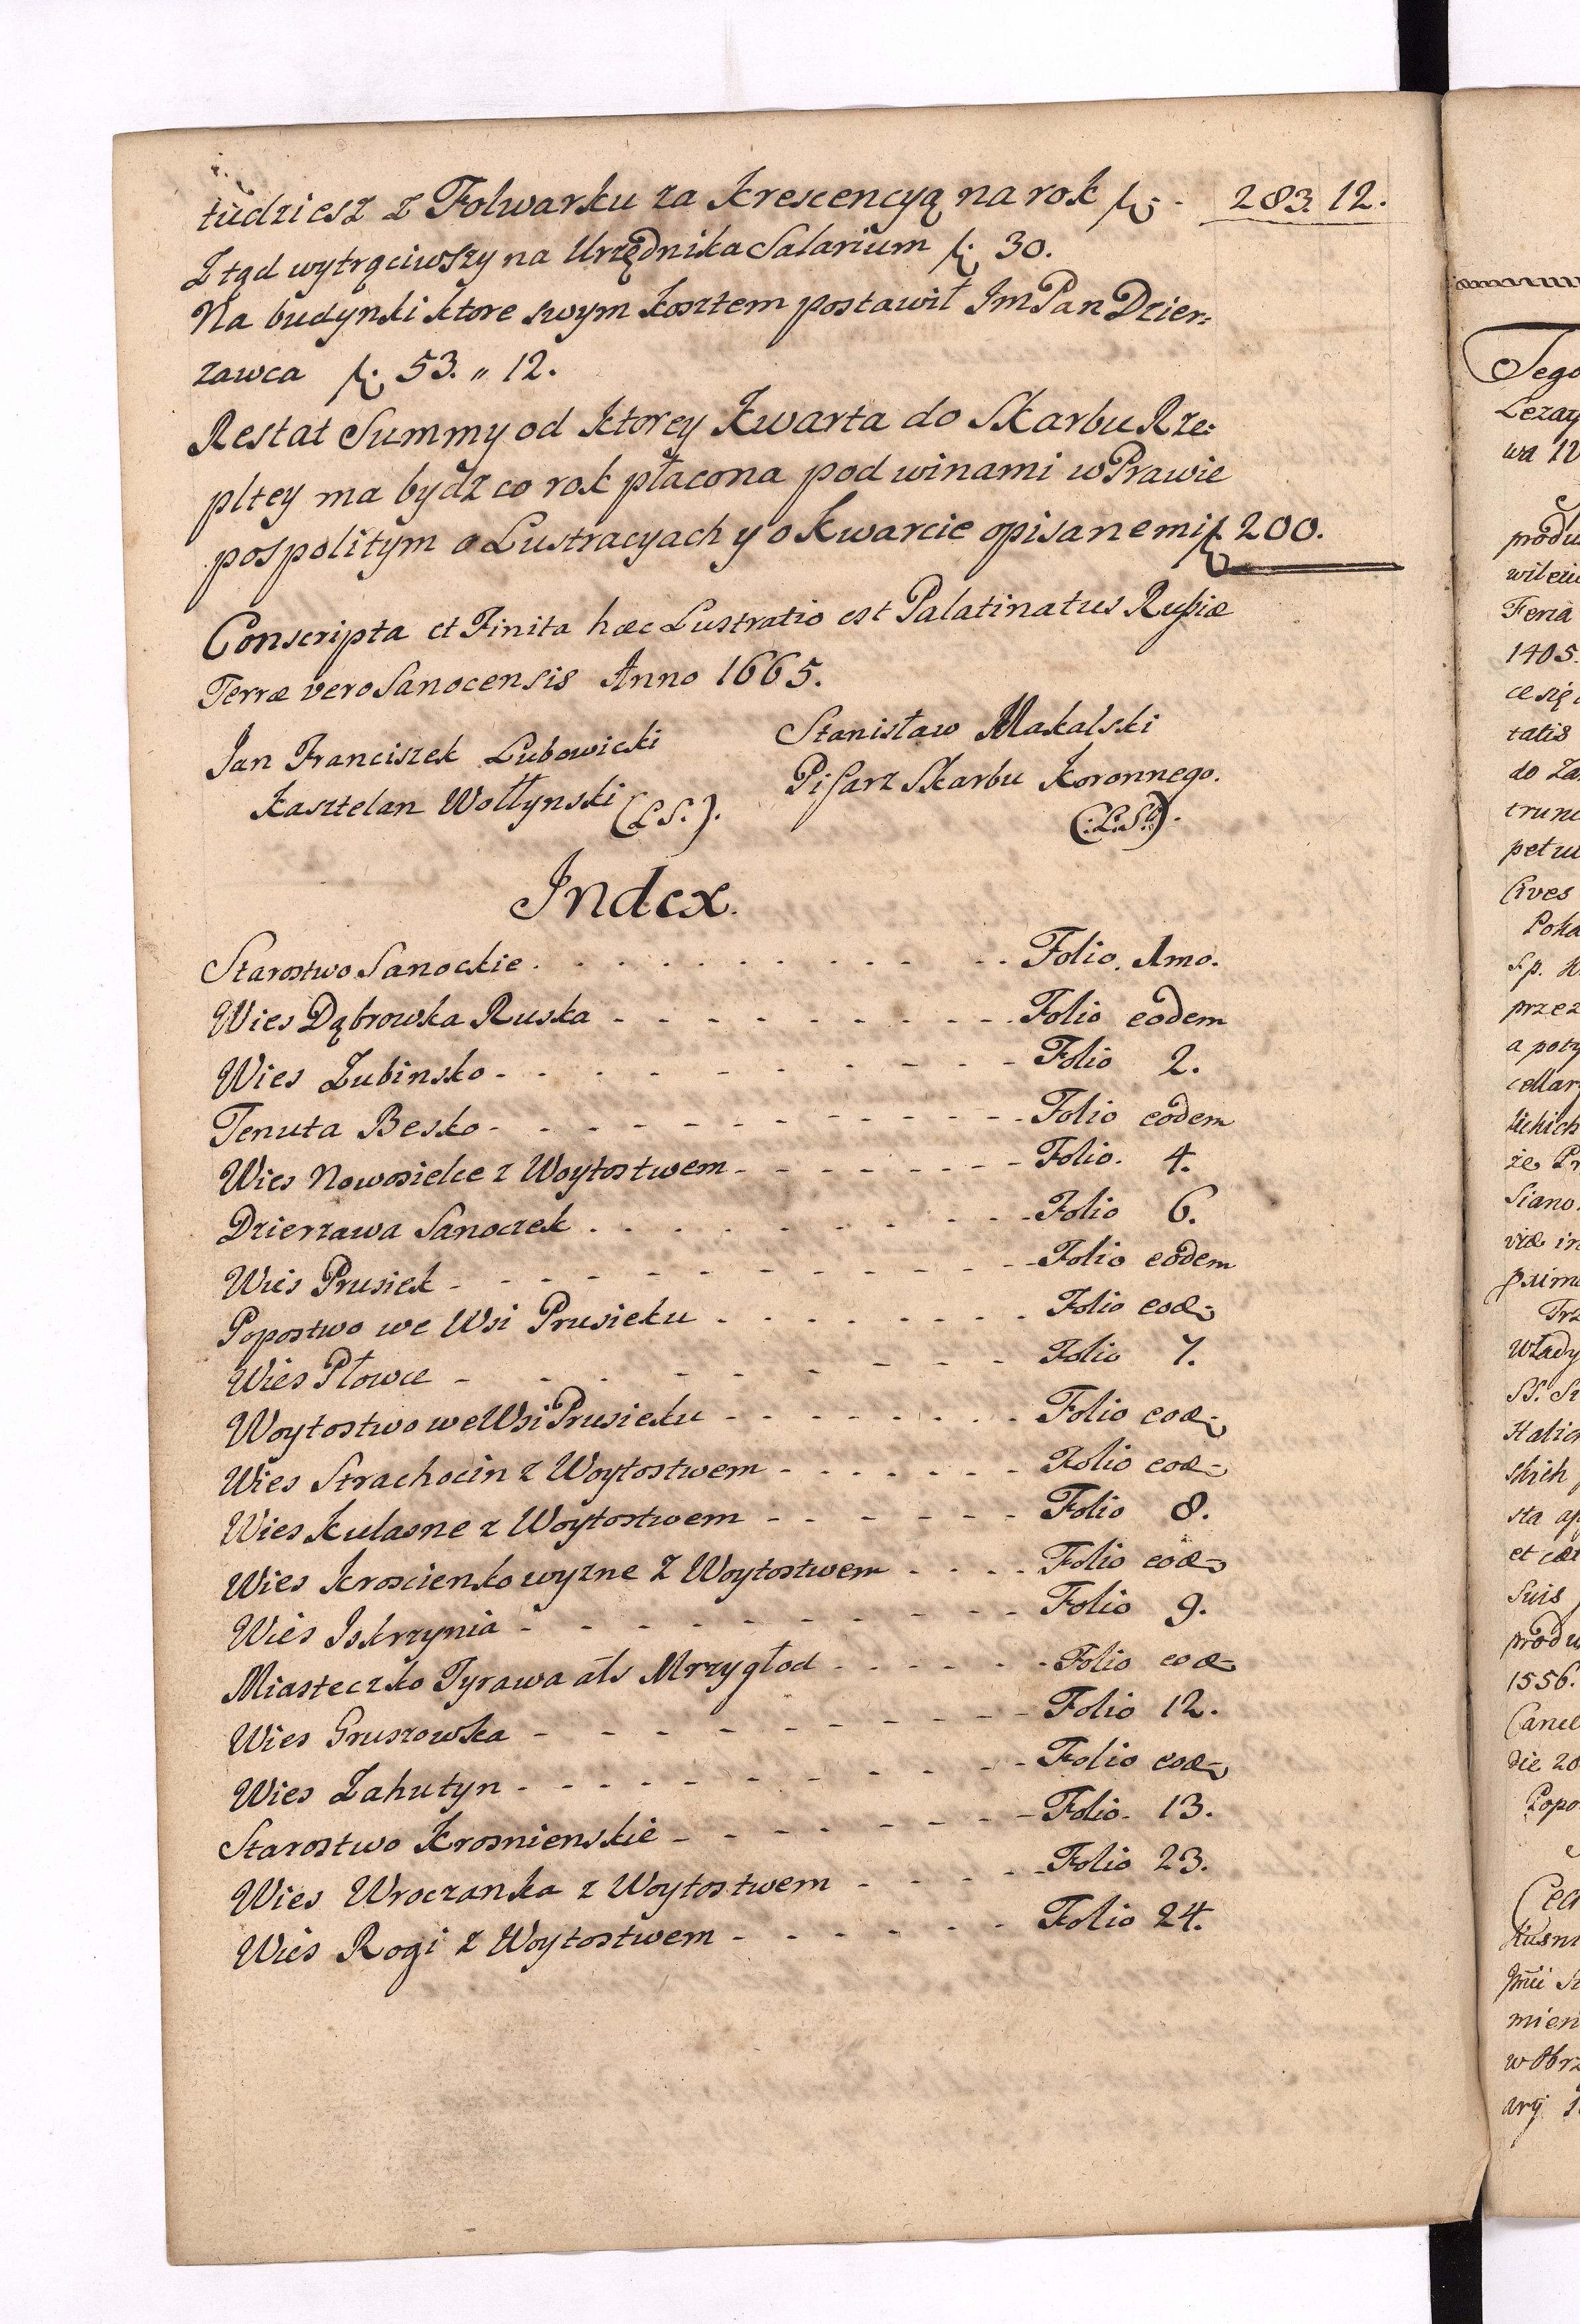 tudziesz z Folwarku za Krescencyą na rok f. - 283. 12.
Ztąd wytrąciwszy na Urzędnika Salarium f. 30.
Na budynki ktore swym kosztem postawił ImPan Dzier:
zawca f. 53. „ 12.
Restat Summy od ktorey Kwarta do Skarbu Rze:
pltey ma bydz co rok płacona pod winami w Prawie
pospolitym o Lustracyach y o kwarcie opisanemi f. 200.
Conscripta et Finita hæc Lustratio est Palatinatus Rußiæ
Terræ vero Sanocensis Anno 1665.
Jan Franciszek Lubowicki Stanisław Makalski
Kasztelan Wołłynski (L.S.). Pisarz Skarbu Koronnego.
(:L.S.:).
Index.
Starostwo Sanockie . . . . . . . . . . Folio. 1mo.
Wies Dąbrowka Ruska - - - - - - - - - - Folio eodem
Wies Zubinsko - - - - - - - - - - Folio 2.
Tenuta Besko - - - - - - - - - - Folio eodem
Wies Nowosielce z Woytostwem - - - - - - - - Folio. 4.
Dzierzawa Sanoczek . . . . . . . . . . Folio 6.
Wies Prusiek - - - - - - - - - - Folio eodem
Popostwo we Wsi Prusieku . . . . . . . . Folio eod:
Wies Płowce - - - - - - - - Folio 7.
Woytostwo we Wsi Prusieku - - - - - - - - Folio eod:
Wies Strachocin z Woytostwem - - - - - - - Folio eod:
Wies Kulasne z Woytostwem - - - - - - Folio 8.
Wies Kroscienko wyzne z Woytostwem . . . . Folio eod:
Wies Iskrzynia - - - - - - - - - Folio 9.
Miasteczko Tyrawa als Mrzygłod . . . . . . Folio eod:
Wies Gruszowka - - - - - - - - - Folio 12.
Wies Zahutyn - - - - - - - - - - Folio eod:
Starostwo Krosnienskie - - - - - - - - Folio. 13.
Wies Wroczanka z Woytostwem - - - - - Folio 23.
Wies Rogi z Woytostwem - - - - - - Folio 24.